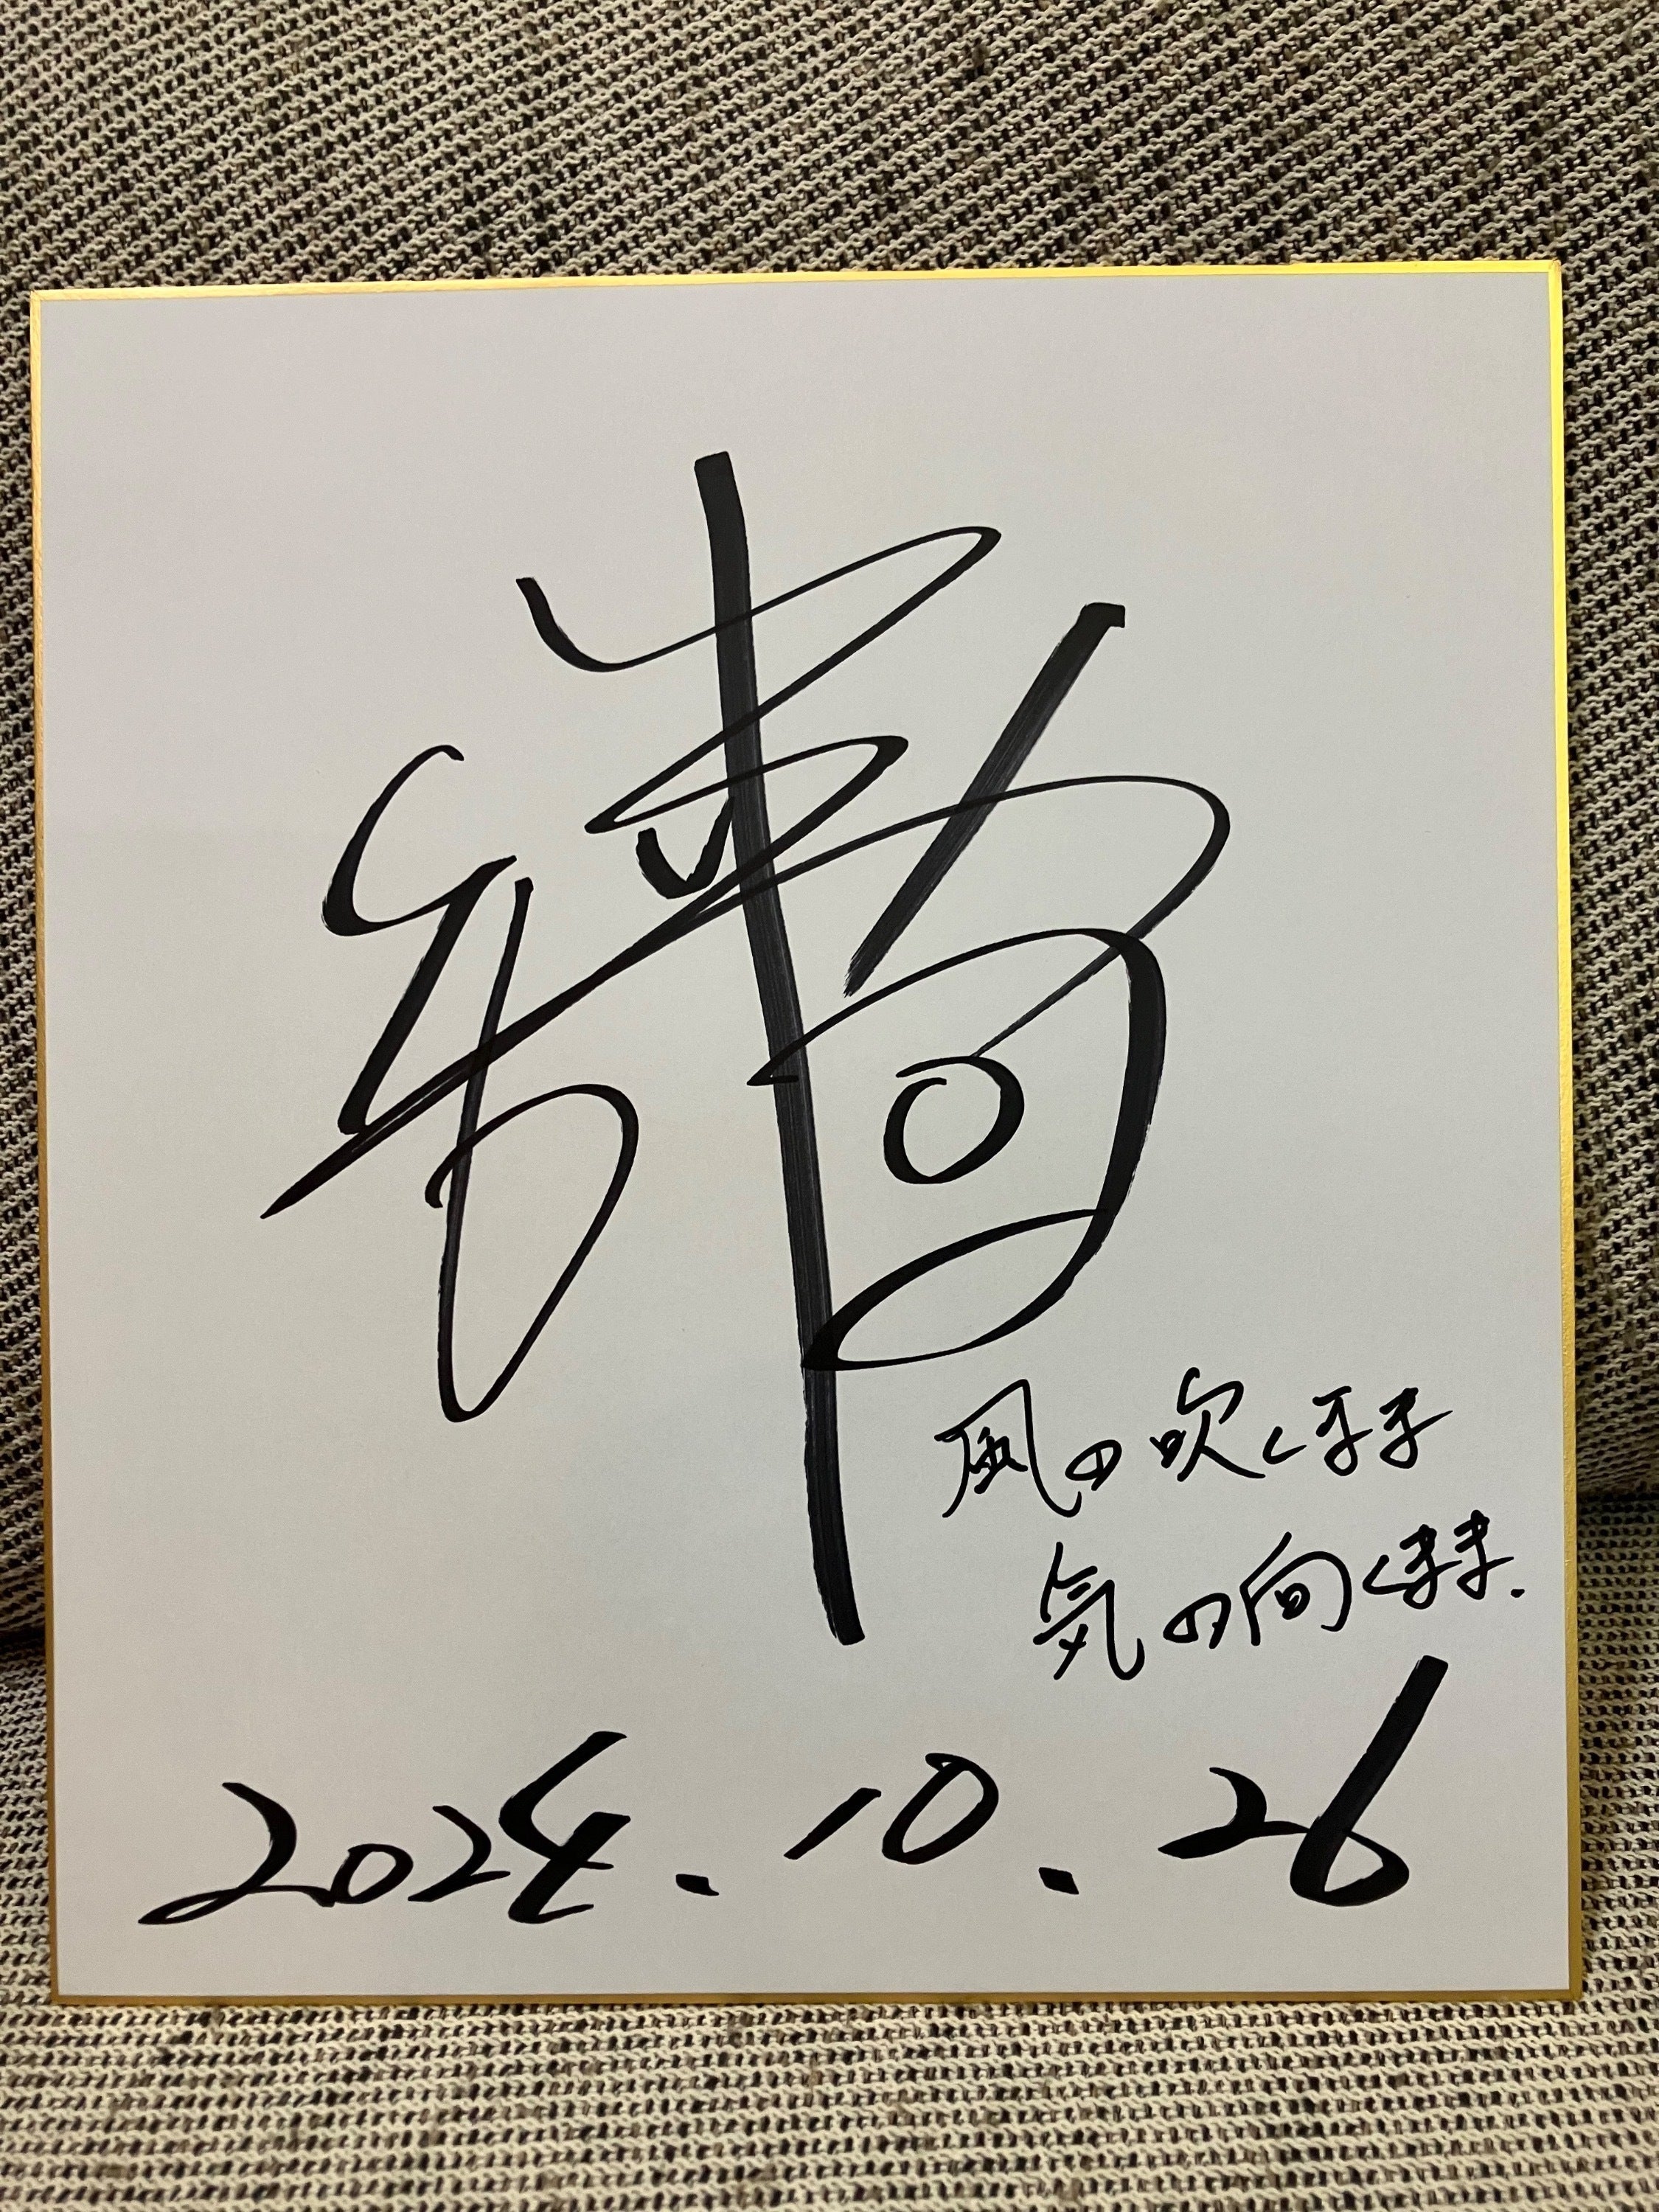 風の吹くまま
気の向くまま.
2024.10.26